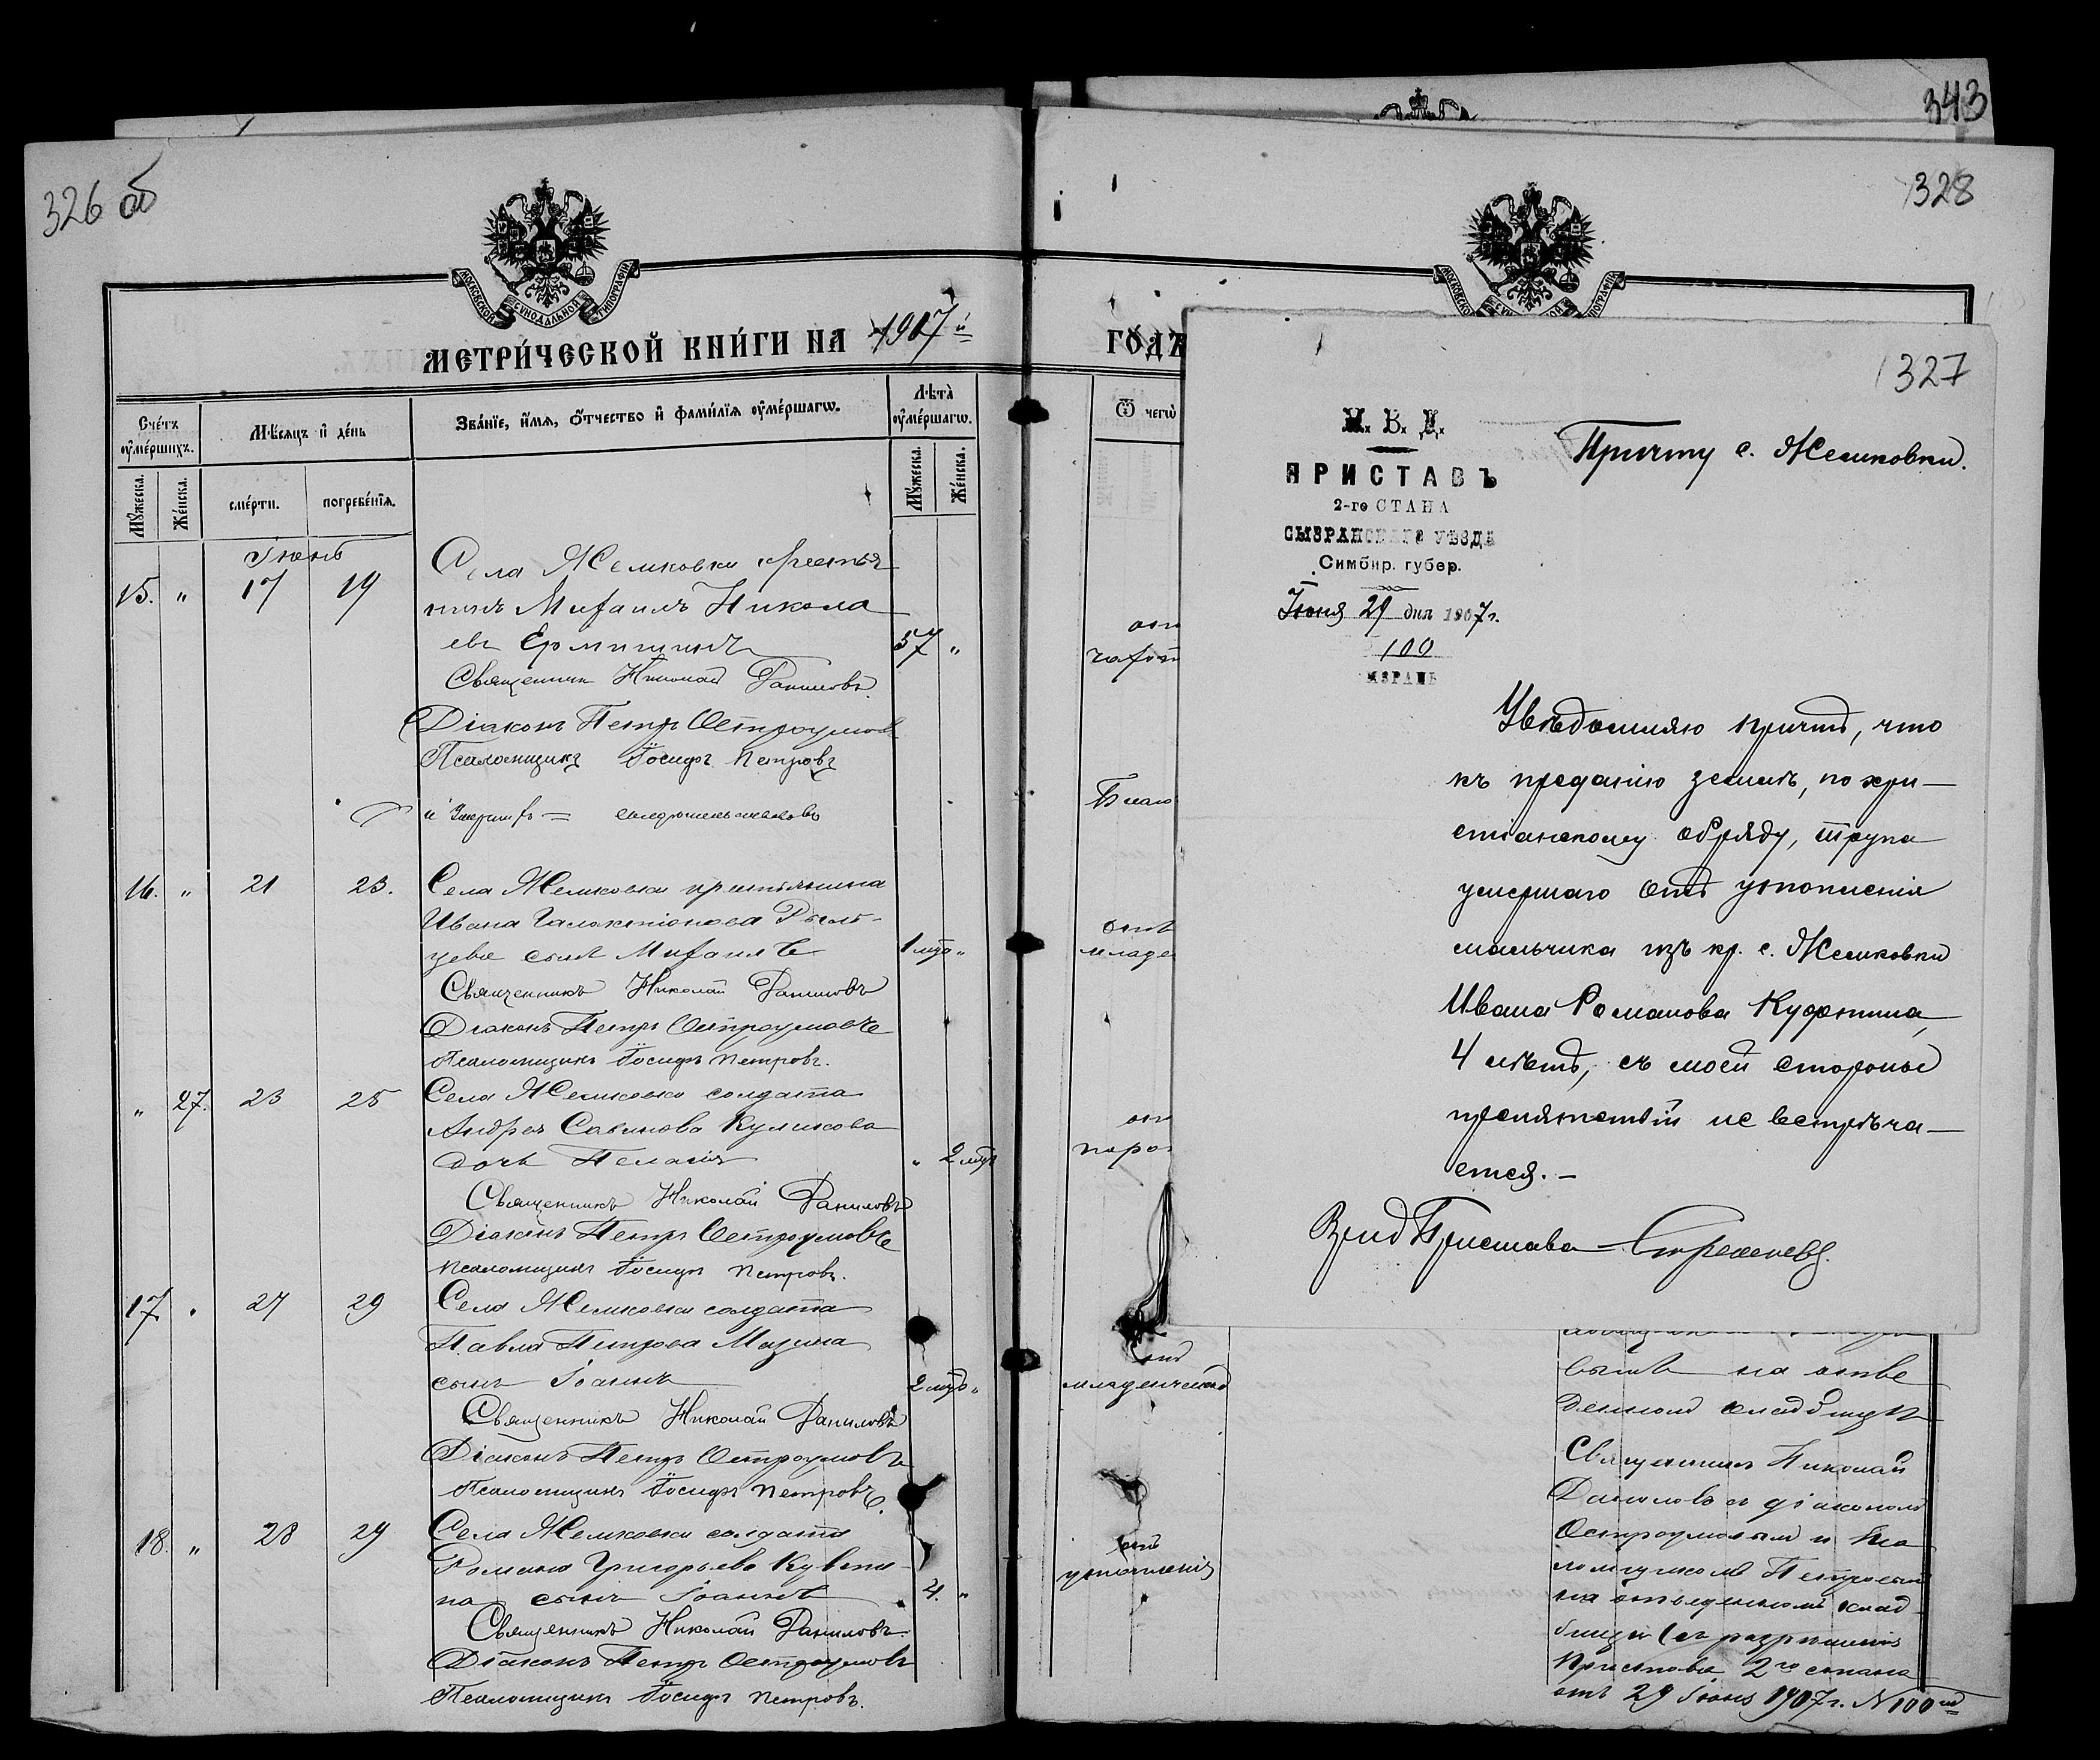 343
326 об
328
МОСКОВСКОЙ СѴНОДАЛЬНОЙ ТИПОГРАФІИ
МЕТРИ́ЧЕСКОЙ КНИ́ГИ НА 1907й
ГО́ДЪ
Сче́тъ ᲂу҆ме́ршихъ.
Мѣ́сяцъ и҆ де́нь
Зва́нїе, и҆́мя, ѻ҆́тчество и҆ фами́лїя ᲂу҆ме́ршагѡ.
Лѣ́та ᲂу҆ме́ршагѡ.
Ѿ чегѡ̀
Мꙋ́жеска.
Же́нска.
сме́рти.
погребе́нїя.
Мꙋ́жеска.
Же́нска.
Іюнь
15. " 17 19
Села Жемковки крестья
нинъ Михаилъ Никола
евъ Ермишинъ 57 "
Священникъ Николай Даниловъ.
Діаконъ Петръ Остроумовъ
Псаломщикъ Іосифъ Петровъ
16. " 21 23.
Села Жемковки крестьянина
Ивана Галактіонова Рыль-
цева сынъ Михаилъ 1 мѣс "
Священникъ Николай Даниловъ
Діаконъ Петръ Остроумовъ
Псаломщикъ Іосифъ Петровъ.
" 27. 23 25
Села Жемковки солдата
Андрея Савинова Куликова
дочь Пелагія " 2 мѣс
Священникъ Николай Даниловъ
Діаконъ Петръ Остроумовъ
Псаломщикъ Іосифъ Петровъ.
17. " 27 29
Села Жемковки солдата
Павла Петрова Мазина
сынъ Іоаннъ 2 "
Священникъ Николай Даниловъ
Діаконъ Петръ Остроумовъ
Псаломщикъ Іосифъ Петровъ.
18. " 28 29
Села Жемковки солдата
Романа Григорьева Кувти
на сынъ Іоаннъ 4. "
Священникъ Николай Даниловъ.
Діаконъ Петръ Остроумовъ
Псаломщикъ Іосифъ Петровъ.
отъ
младе
отъ
отъ
младенческой
отъ
утопленія
327
М. В. Д.
ПРИСТАВЪ
2-го СТАНА
СЫЗРАНСКАГО УѢЗДА
Симбир. губер.
Іюня 29 дня 1907 г.
100
ЫЗРАНЬ
Причту с. Жемковки.
Увѣдомляю причтъ, что
къ преданію землѣ, по хри-
стіанскому обряду, трупа
умершаго отъ утопленія
мальчика изъ кр. с. Жемковки
Ивана Романова Куфтина,
4 лѣтъ, съ моей стороны
препятствій не встрѣча-
ется. -
Врид Пристава
на отве
денномъ кладбищѣ
Священникъ Николай
Даниловъ съ діакономъ
Остроумовымъ и Пса
ломщикомъ Петровымъ
на отведенномъ клад
бищѣ (съ разрѣшенія
Пристава 2го стана
отъ 29 Іюня 1907 г. N 100